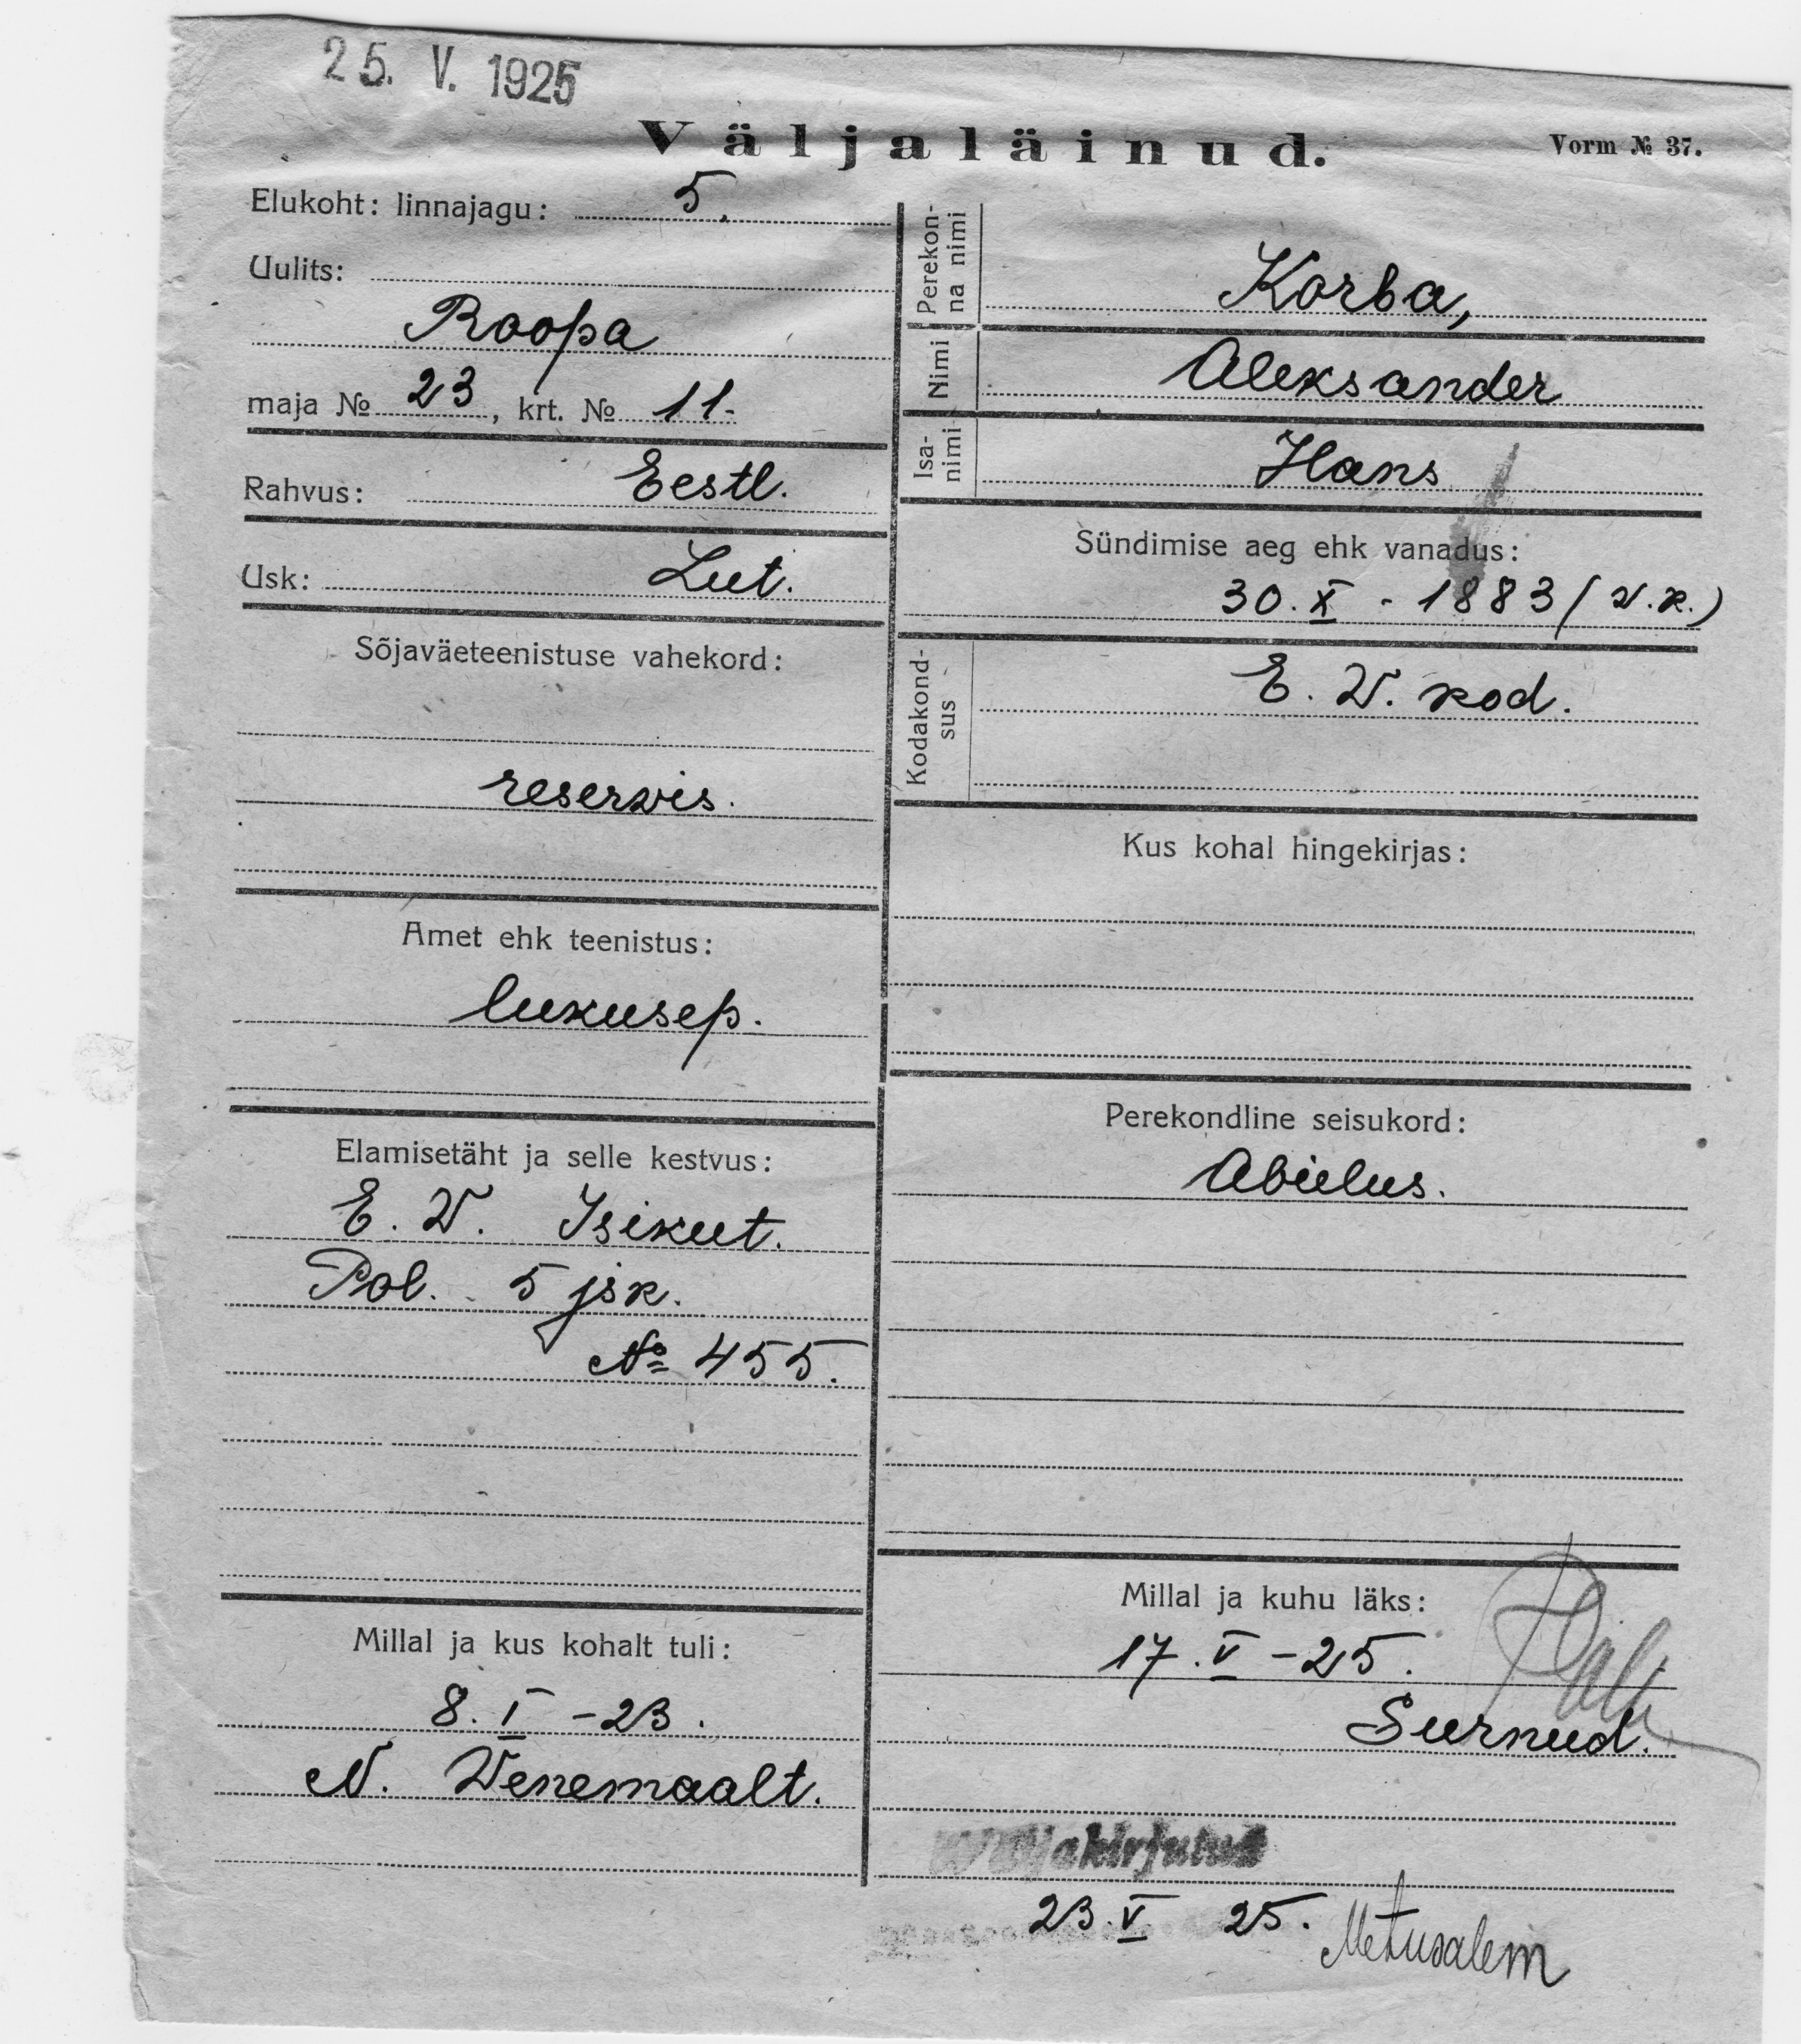 25. V. 1925
Väljaläinud.
Vorm № 37.
Elukoht: linnajagu: 5.
Uulits:
Roopa
maja № 23, krt. № 11-
Rahvus: Eestl.
Usk: Lut.
Sõjaväeteenistuse vahekord:
reservis.
Amet ehk teenistus:
lukusep.
Elamisetäht ja selle kestvus:
E. W. Isikut.
Pol. 5 jsk.
№ 455.
Millal ja kus kohalt tuli:
8. I -23.
N. Wenemaalt.
Perekon-
na nimi
Korba,
Nimi
Aleksander
Isa-
nimi
Hans
Sündimise aeg ehk vanadus:
30. X - 1883 (v.k.)
Kodakond-
sus
E. W. kod.
Kus kohal hingekirjas:
Perekondline seisukord:
Abielus.
Millal ja kuhu läks:
17. V -25.
Surnud.
Wäljakirjutud
23. V 25.
Metusalem